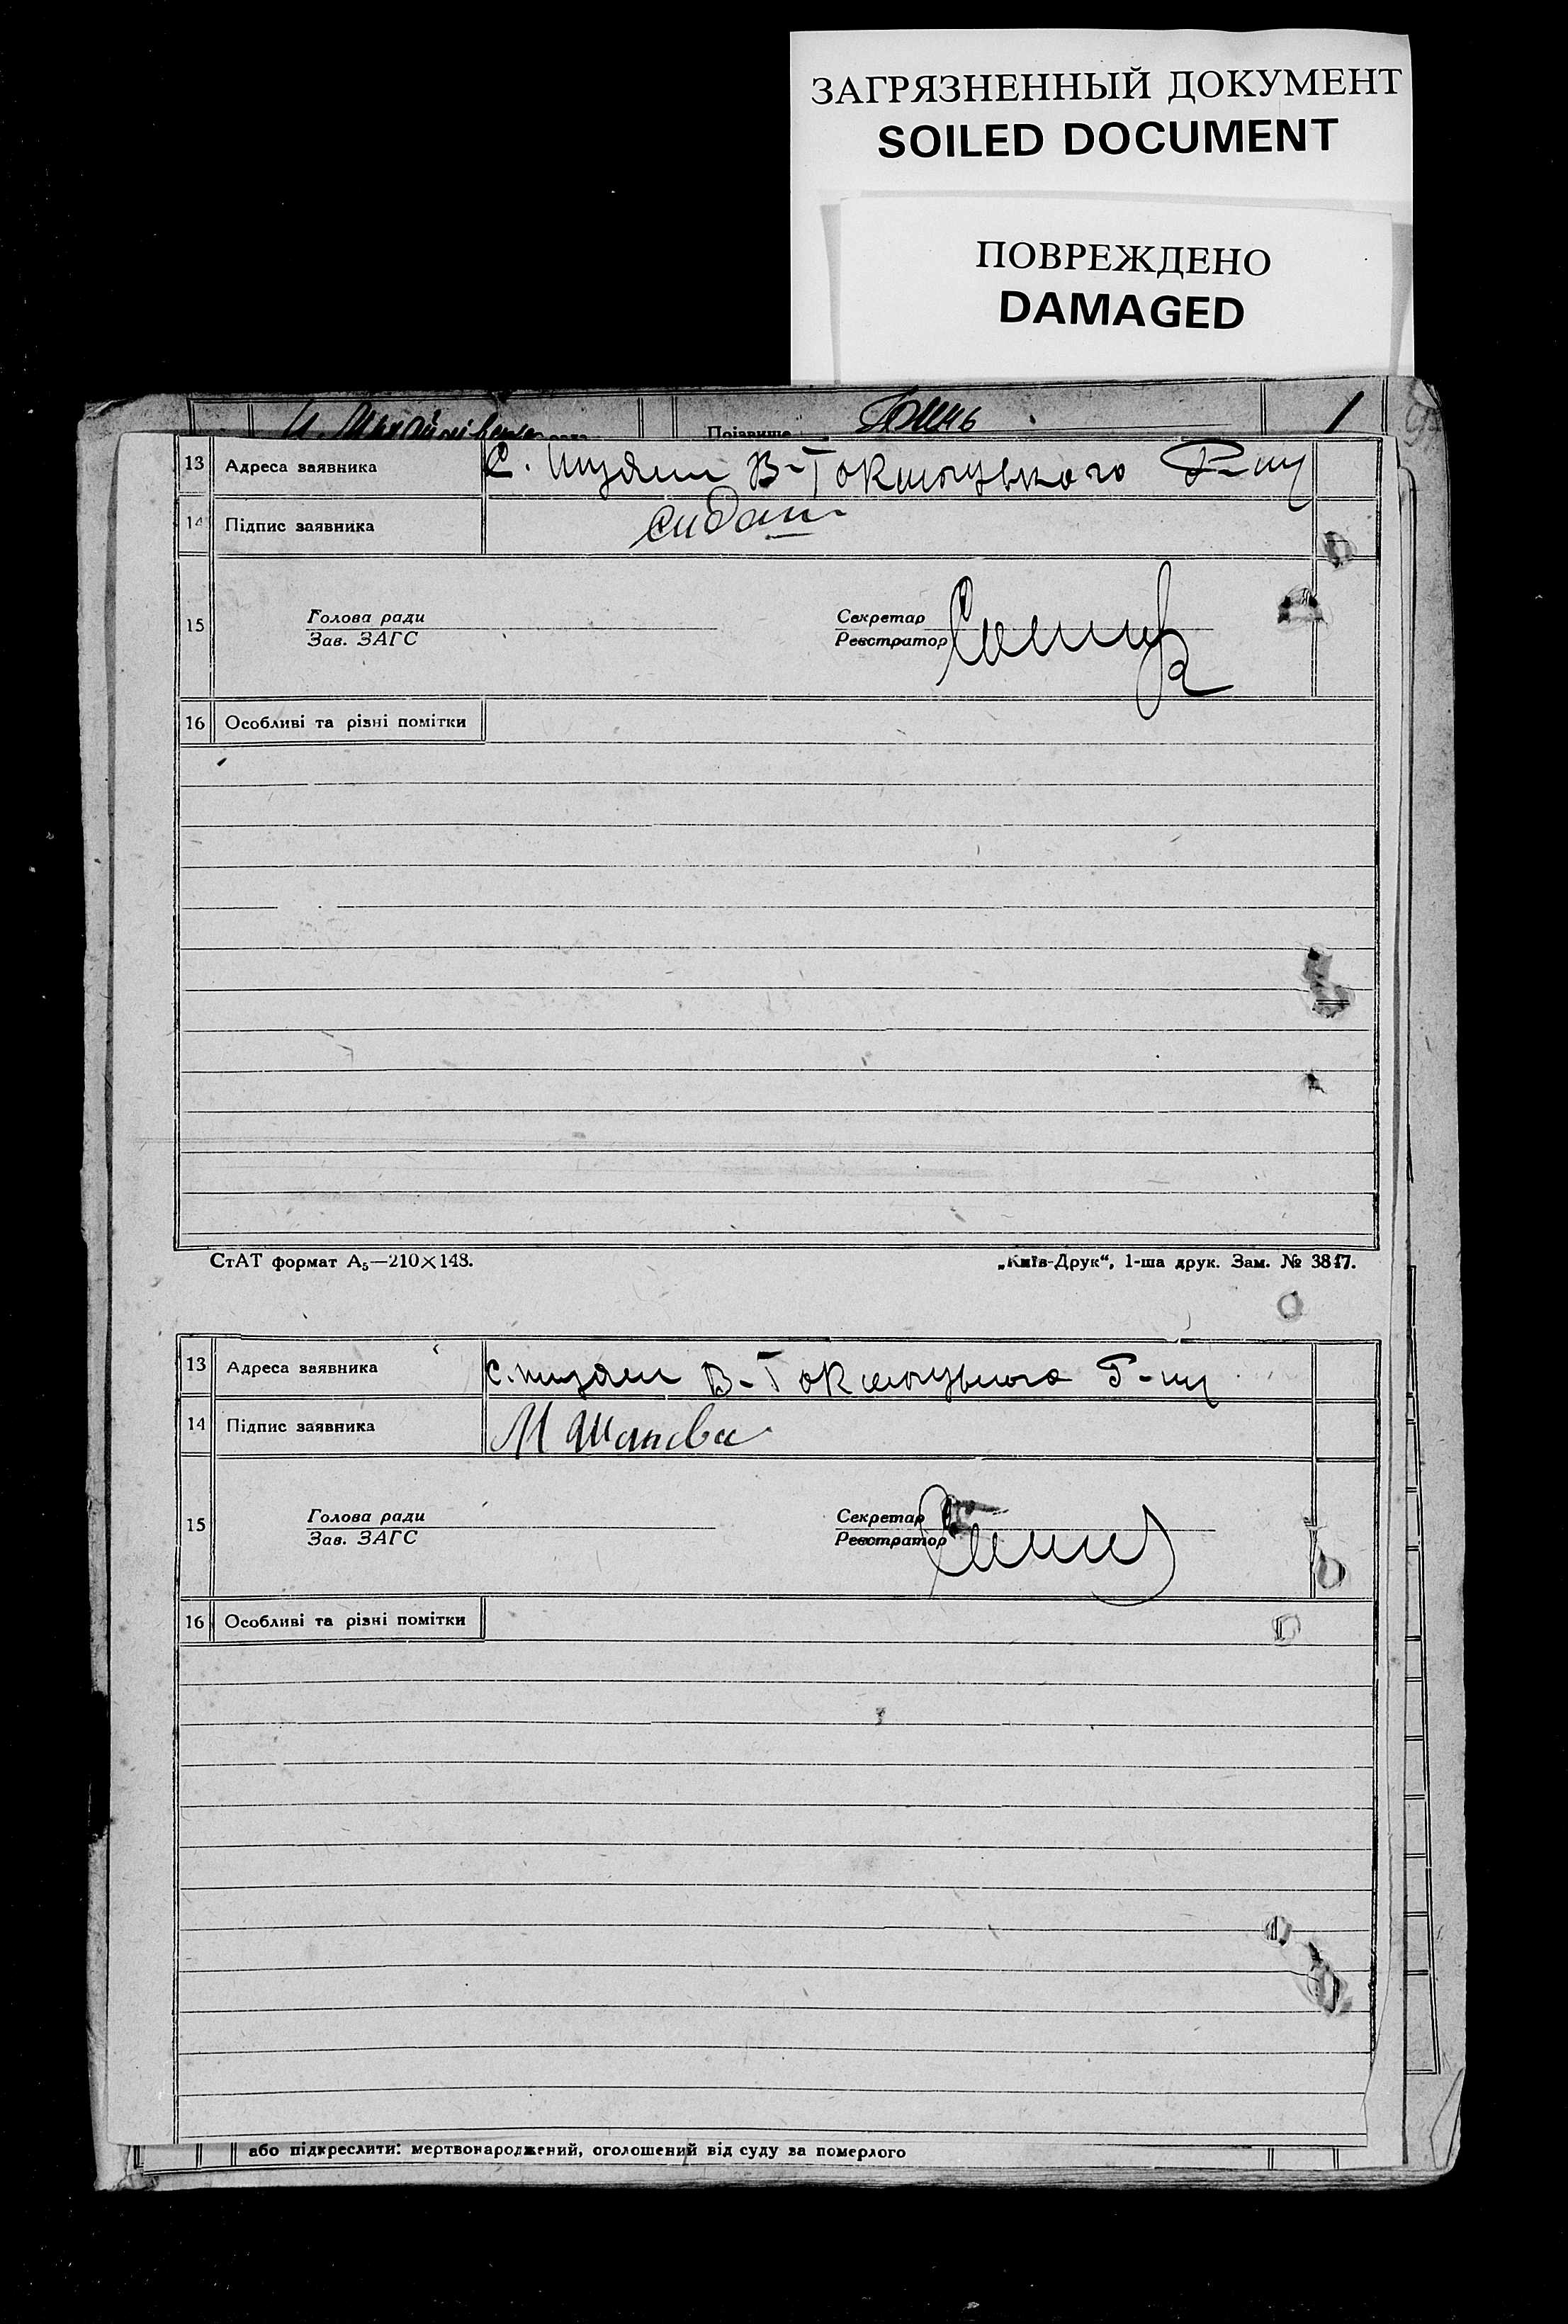 ЗАГРЯЗНЕННЫЙ ДОКУМЕНТ
SOILED DOCUMENT
ПОВРЕЖДЕНО
DAMAGED
Прізвище
1
13 Адреса заявника С. В-Токмацького Р-ну
14 Підпис заявника
15 Голова ради Секретар
Зав. ЗАГС Реєстратор
16 Особливі та різні помітки
СтАТ формат А₅—210×148.
„Київ-Друк“, 1-ша друк. Зам. № 3817.
13 Адреса заявника с. В-Токмацького Р-ну
14 Підпис заявника М
15 Голова ради Секретар
Зав. ЗАГС Реєстратор
16 Особливі та різні помітки
або підкреслити: мертвонароджений, оголошений від суду за померлого